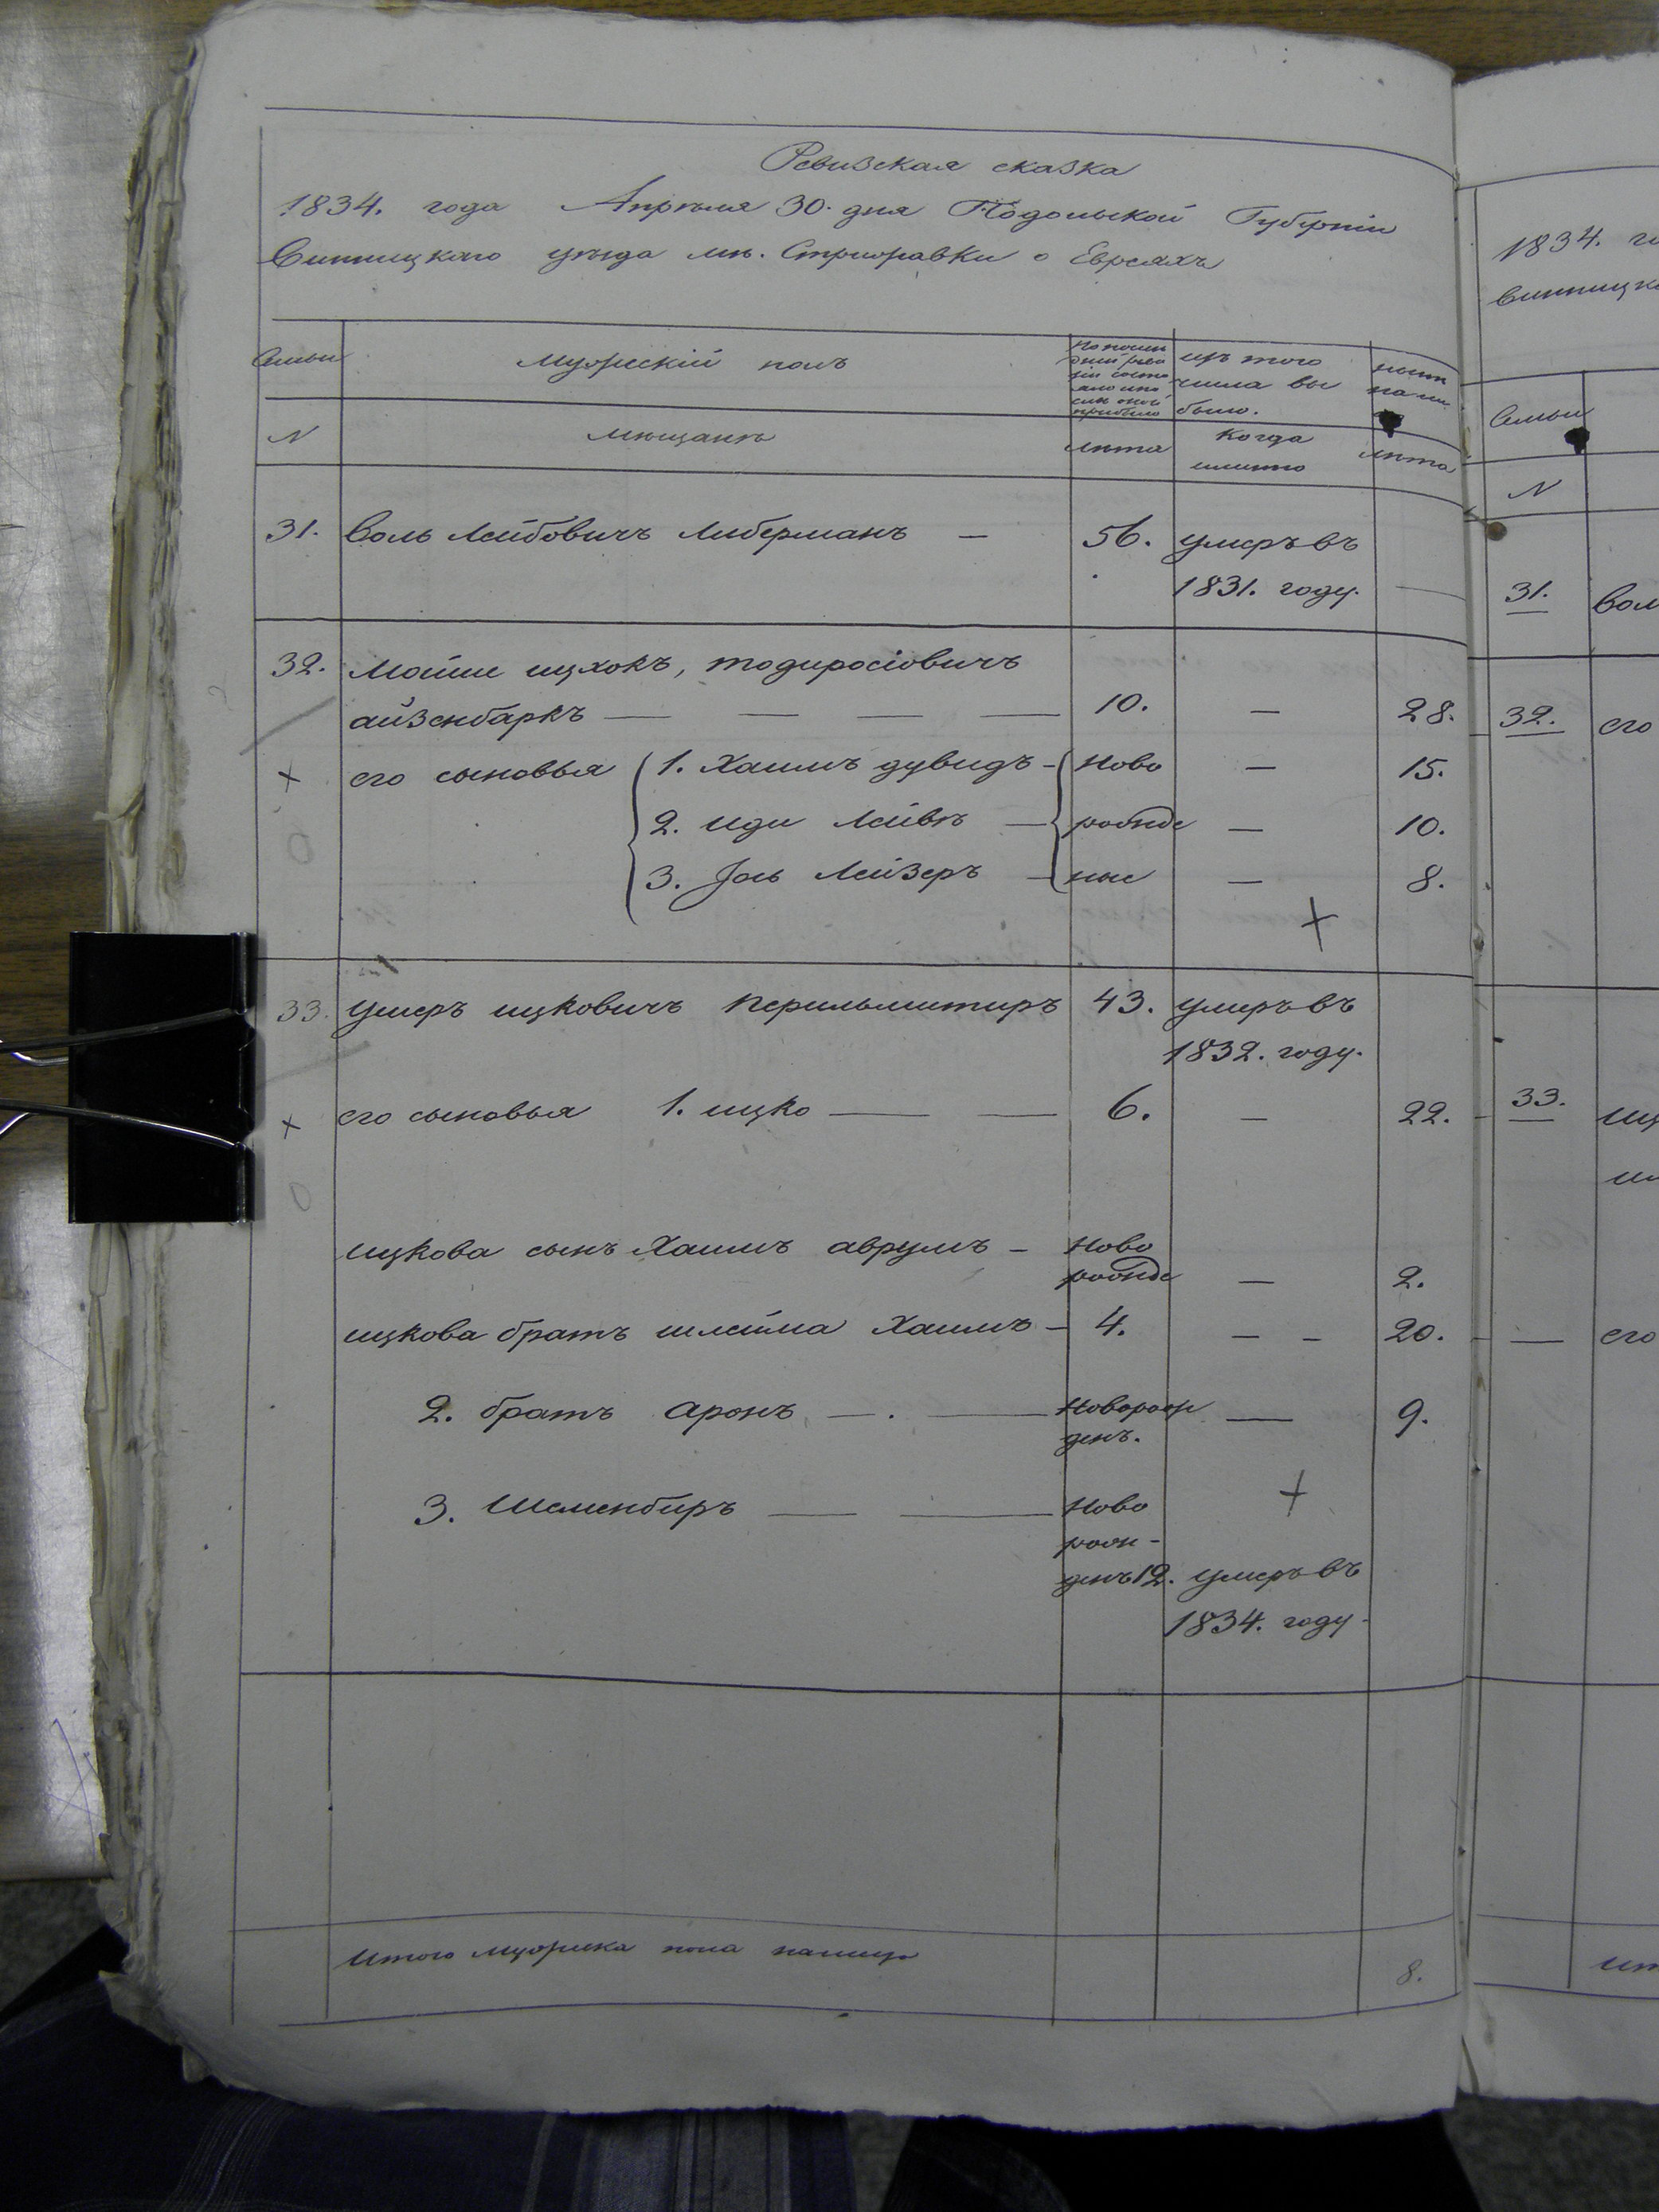 Ревизская сказка
1834. года Апрѣля 30. дня Подольской Губерніи
Винницкаго уѣзда мѣ. Стрижавки о Евреяхъ
Семьи
Мужескій полъ
По послѣ
дней реви
зіи состо
яло и по
слѣ оной
прибыло
изъ того
числа вы
было.
нынѣ
на ли
N
Мѣщанъ
лѣта
когда
именно
лѣта
31. Воль Лейбовичъ Либерманъ — 56. умеръ въ
1831. году. —
32. Мошие ицхокъ, тодиросіовичъ
айзенбаркъ — — — — 10. — 28.
его сыновья 1. Хаимъ дувидъ - Ново — 15.
2. иди Лейвъ — рожде — 10.
3. Јось Лейзеръ — ные — 8.
33. Умеръ ицковичъ Перильмитиръ 43. умеръ въ
1832. году.
его сыновья 1. ицко — — 6. — 22.
ицкова сынъ Хаимъ аврумъ - Ново
рожде — 2.
ицкова братъ шлейма Хаимъ - 4. — - 20.
2. братъ аронъ — . — Новорож — 9.
денъ.
3. Шеменбиръ — — Ново
рож -
денъ 12. умеръ въ
1834. году.
Итого мужеска пола налицо 8.
1834. го
винницка
Семьи
N
31. Вол
32. его
33. иц
— его
ит